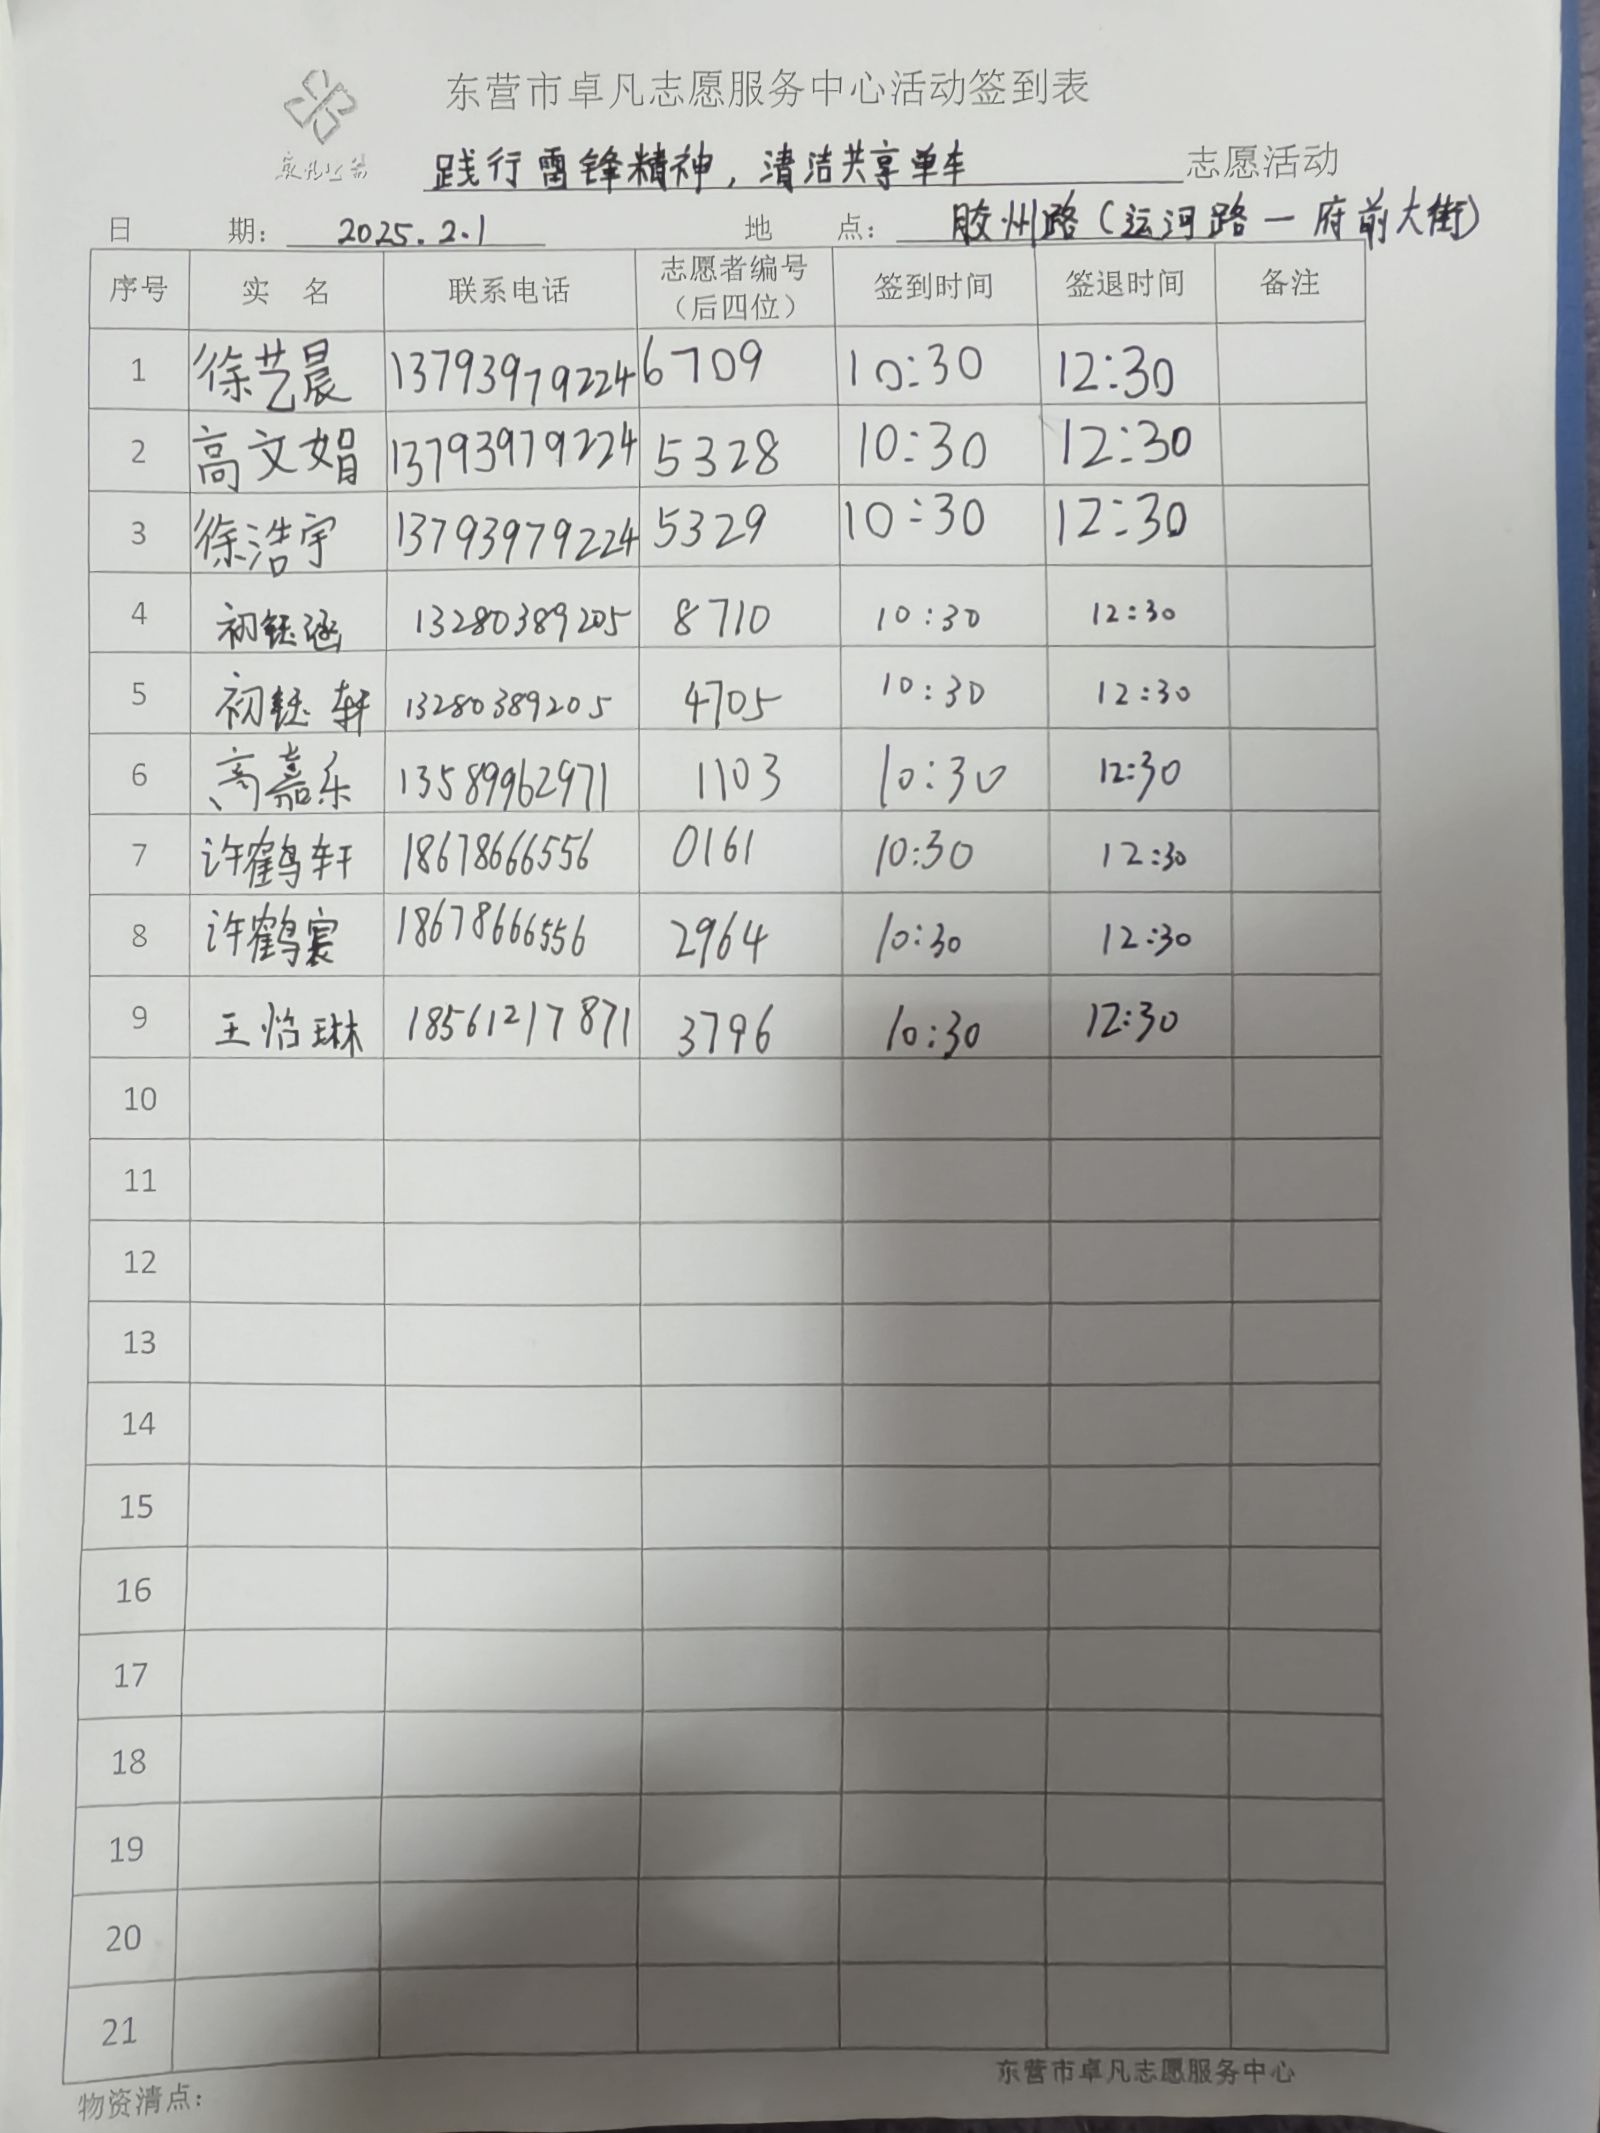 东营市卓凡志愿服务中心活动签到表
践行雷锋精神，清洁共享单车 志愿活动
日 期： 2025.2.1 地 点： 胶州路（运河路一府前大街）
序号 实 名 联系电话 志愿者编号（后四位） 签到时间 签退时间 备注
1 徐艺晨 13793979224 6709 10:30 12:30
2 高文娟 13793979224 5328 10:30 12:30
3 徐浩宇 13793979224 5329 10:30 12:30
4 初钰涵 13280389205 8710 10:30 12:30
5 初钰轩 13280389205 4705 10:30 12:30
6 高嘉乐 13589962971 1103 10:30 12:30
7 许鹤轩 18678666556 0161 10:30 12:30
8 许鹤宸 18678666556 2964 10:30 12:30
9 王怡琳 18561217871 3796 10:30 12:30
10
11
12
13
14
15
16
17
18
19
20
21
东营市卓凡志愿服务中心
物资清点：